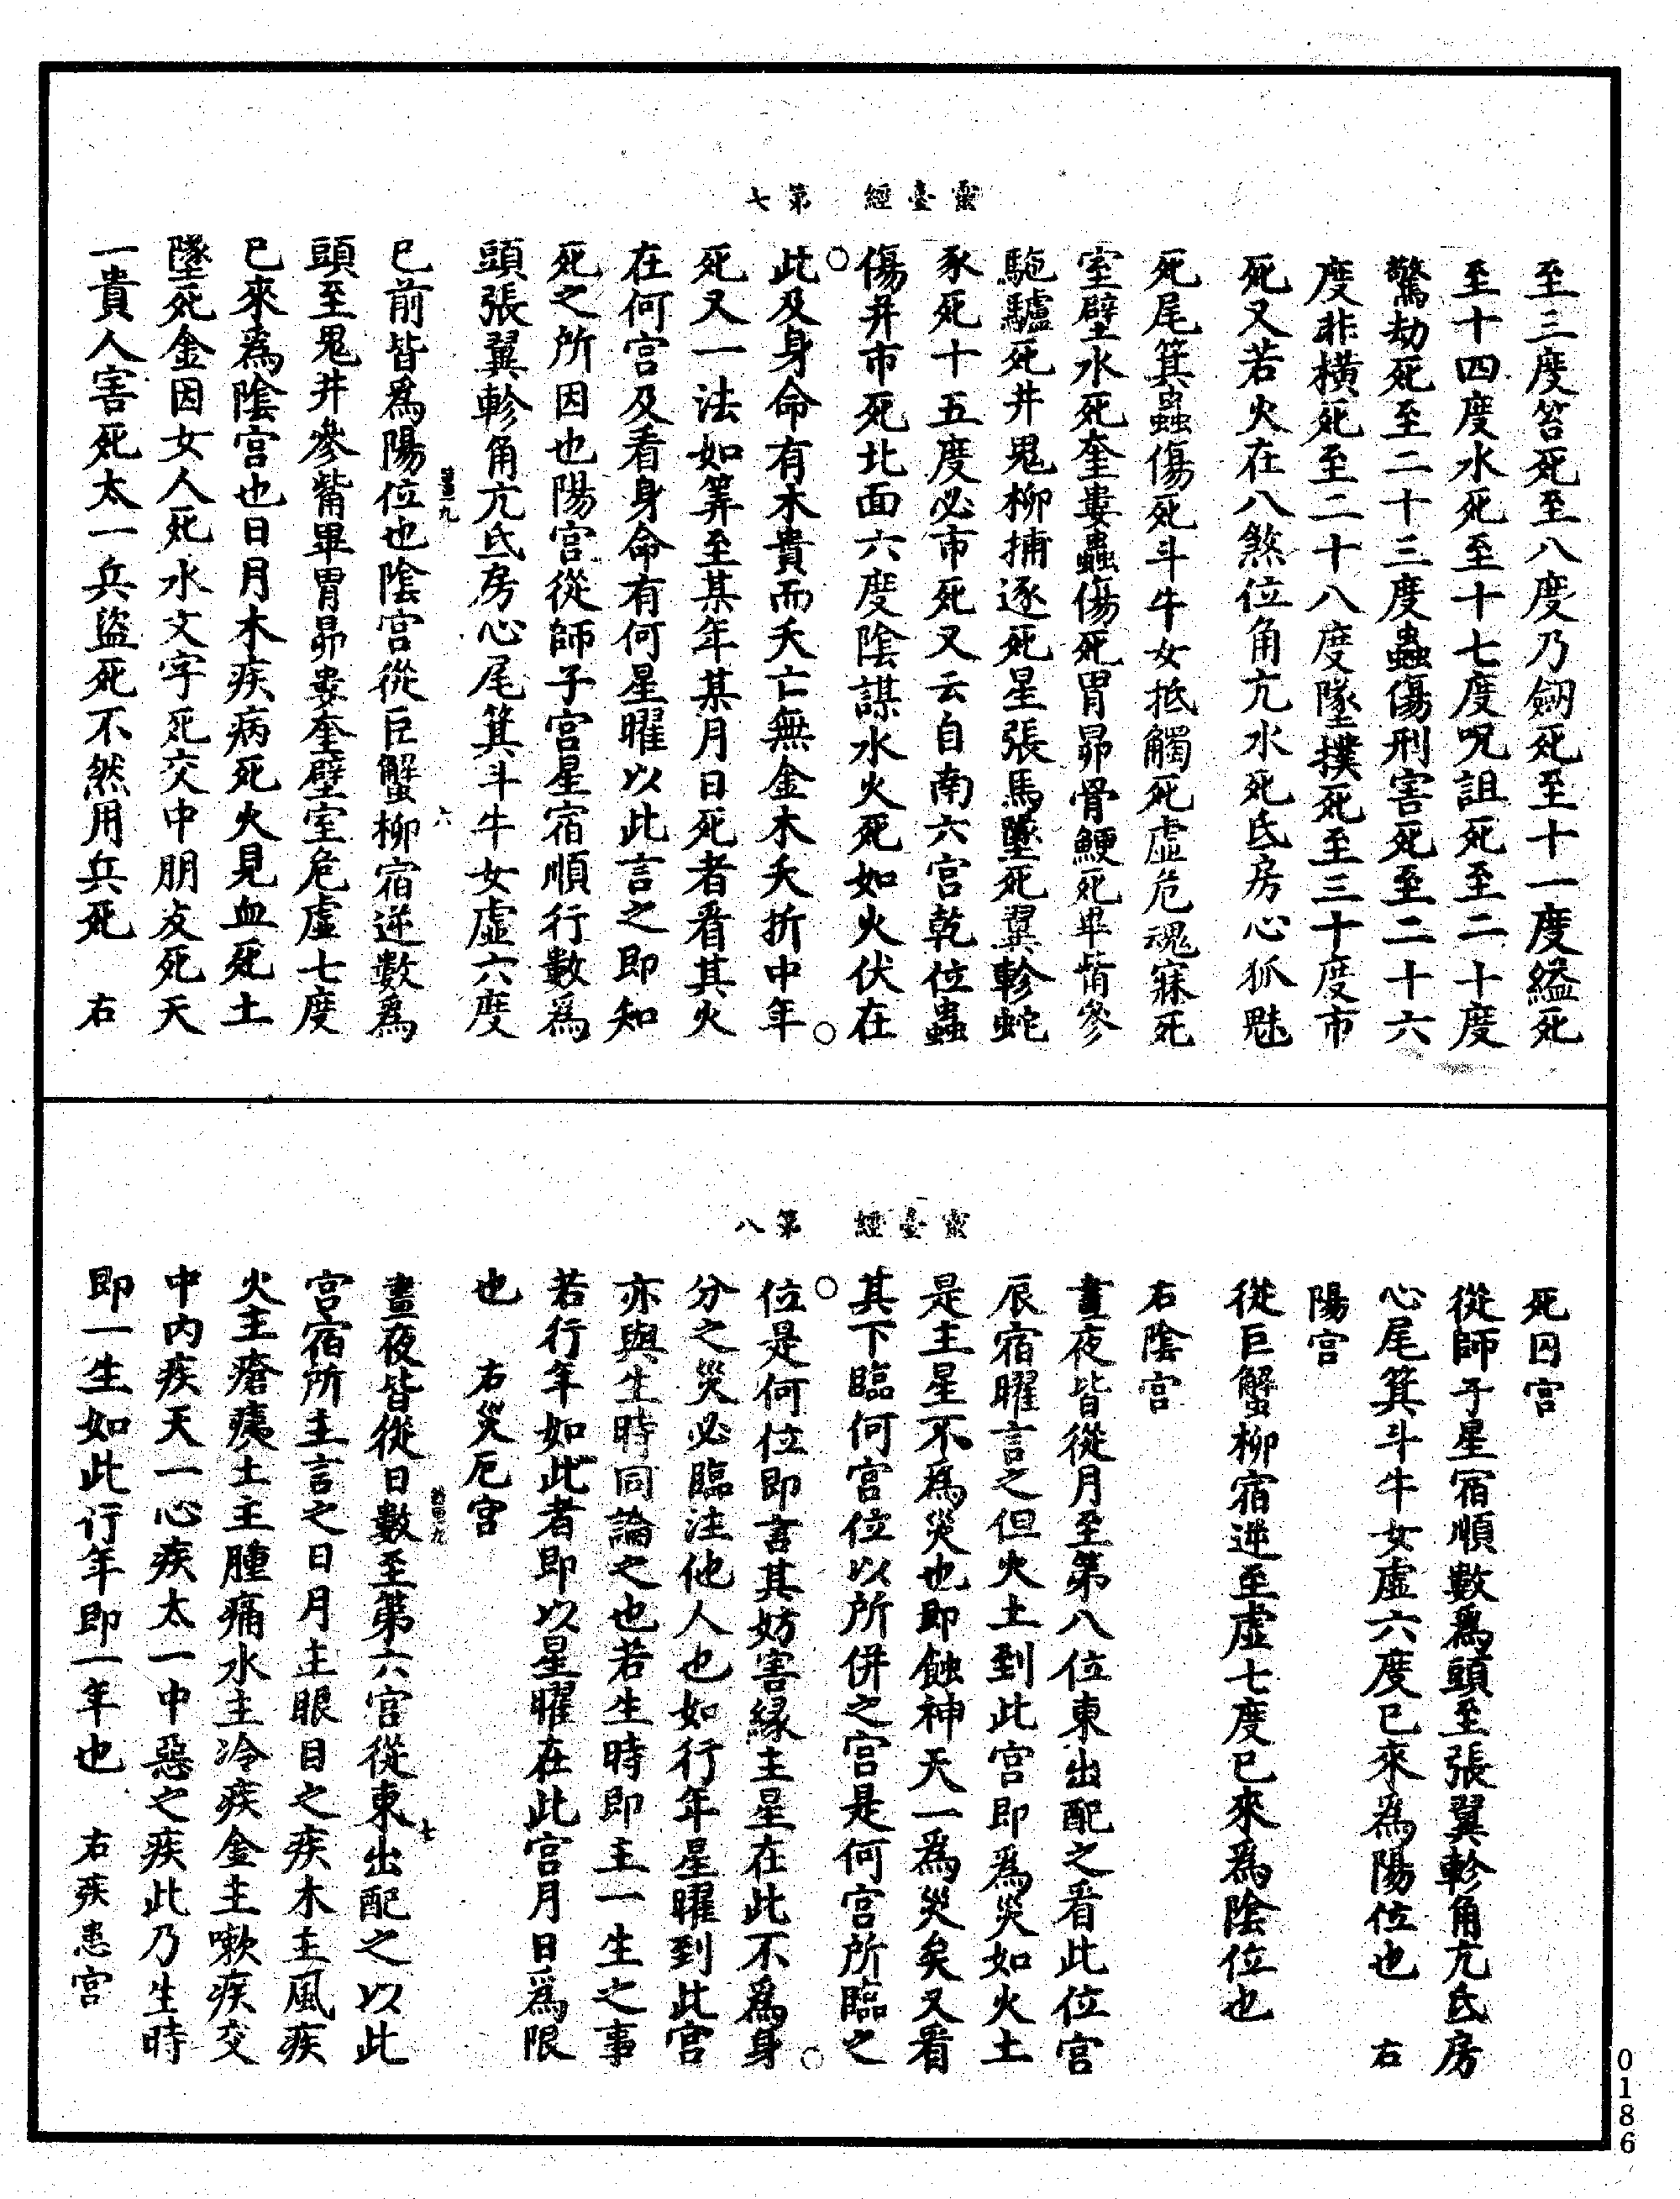 靈臺經　第七
至三度笞死至八度乃劒死至十一度縊死
至十四度水死至十七度呪詛死至二十度
驚劫死至二十三度蟲傷刑害死至二十六
度非橫死至二十八度墜撲死至三十度市
死又若火在八煞位角亢水死氐房心狐魅
死尾箕蟲傷死斗牛女抵觸死虛危魂寐死
室壁水死奎婁蟲傷死胃昴骨鯁死畢觜參
駞驢死井鬼柳捕逐死星張馬墜死翼軫蛇
豕死十五度必市死又云自南六宮乾位蟲
傷并市死北面六度陰謀水火死如火伏在
此及身命有木貴而夭亡無金木夭折中年
死又一法如筭至某年某月日死者看其火
在何宮及看身命有何星曜以此言之即知
死之所因也陽宮從師子宮星宿順行數爲
頭張翼軫角亢氐房心尾箕斗牛女虛六度
巳前皆爲陽位也陰宮從巨蟹柳宿逆數爲
六
頭至鬼井參觜畢胃昴婁奎壁室危虛七度
巳來爲陰宮也日月木疾病死火見血死土
墜死金因女人死水文字死交中朋友死天
一貴人害死太一兵盜死不然用兵死　右
靈臺經　第八
死囚宮
從師子星宿順數爲頭至張翼軫角亢氐房
心尾箕斗牛女虛六度巳來爲陽位也　右
陽宮
從巨蟹柳宿逆至虛七度巳來爲陰位也
右陰宮
晝夜皆從月至第八位東出配之看此位宮
辰宿曜言之但火土到此宮即爲災如火土
是主星不爲災也即蝕神天一爲災矣又看
其下臨何宮位以所併之宮是何宮所臨之
位是何位即言其妨害緣主星在此不爲身
分之災必臨注他人也如行年星曜到此宮
亦與生時同論之也若生時即主一生之事
若行年如此者即以星曜在此宮月日爲限
也　右災厄宮
晝夜皆從日數至第六宮從東出配之以此
七
宮宿所主言之日月主眼目之疾木主風疾
火主瘡痍土主腫痛水主冷疾金主嗽疾交
中內疾天一心疾太一中惡之疾此乃生時
即一生如此行年即一年也　右疾患宮
0186